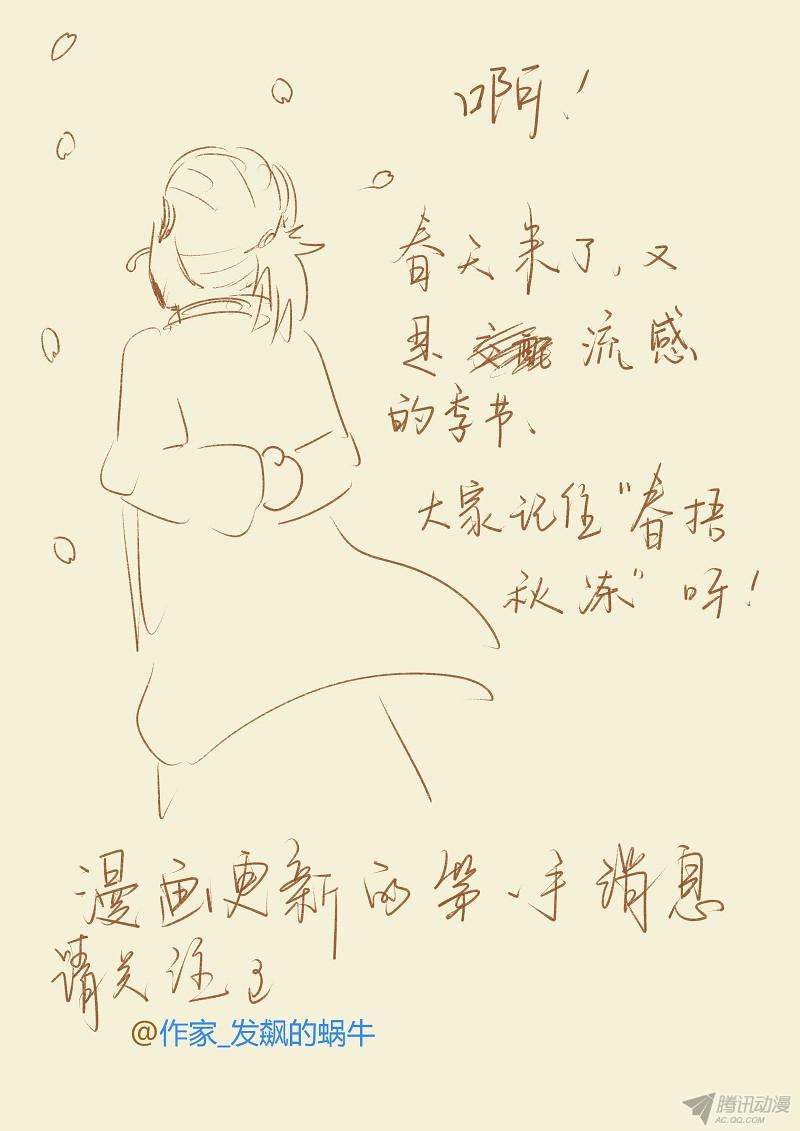 啊！
春天来了，又
是交配流感
的季节、
大家记住“春捂
秋冻”呀！
漫画更新的第一手消息
请关注
@作家_发飙的蜗牛
腾讯动漫
AC.QQ.COM